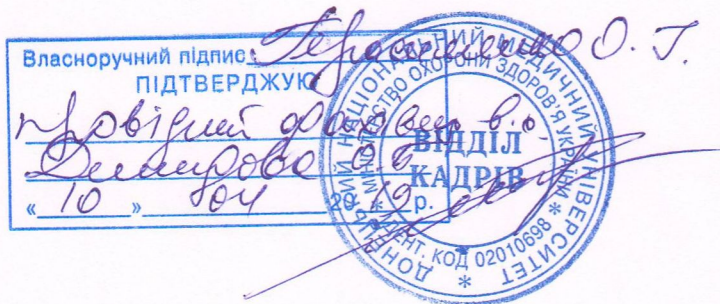 Власноручний підпис Герасименко О. І.
ПІДТВЕРДЖУЮ
провідний фахівець в.к.
« 10 » 04 2019 р.
ДОНЕЦЬКИЙ НАЦІОНАЛЬНИЙ МЕДИЧНИЙ УНІВЕРСИТЕТ
МІНІСТЕРСТВО ОХОРОНИ ЗДОРОВ'Я УКРАЇНИ * ІДЕНТ. КОД 02010698 *
ВІДДІЛ
КАДРІВ